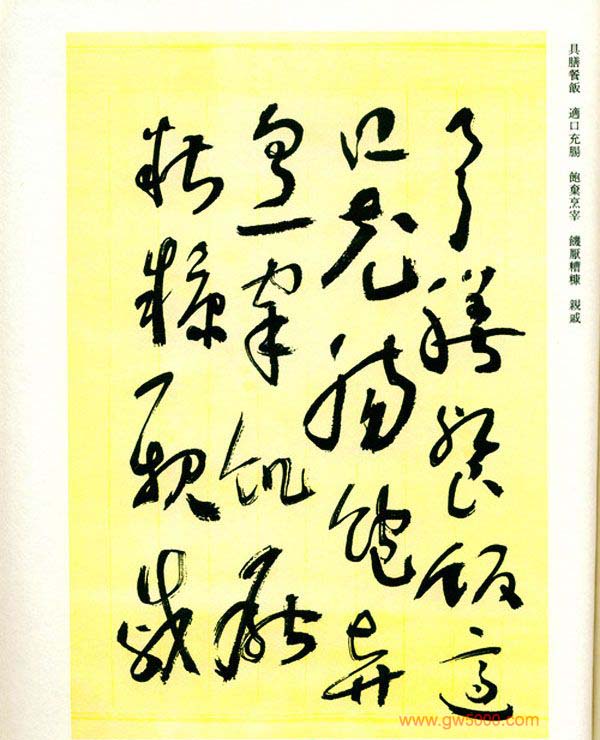 具膳餐飯 適口充腸 飽棄烹宰 饑厭糟糠 親戚
具膳餐飯適
口充腸飽棄
烹宰飢厭
糟糠親戚
www.gw5000.com